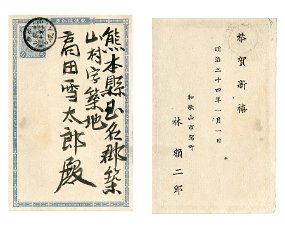 熊本縣玉名郡築
山村字築地
高田雪太郎殿
恭賀新禧
明治三十四年一月一日
和歌山市
林頼二郎